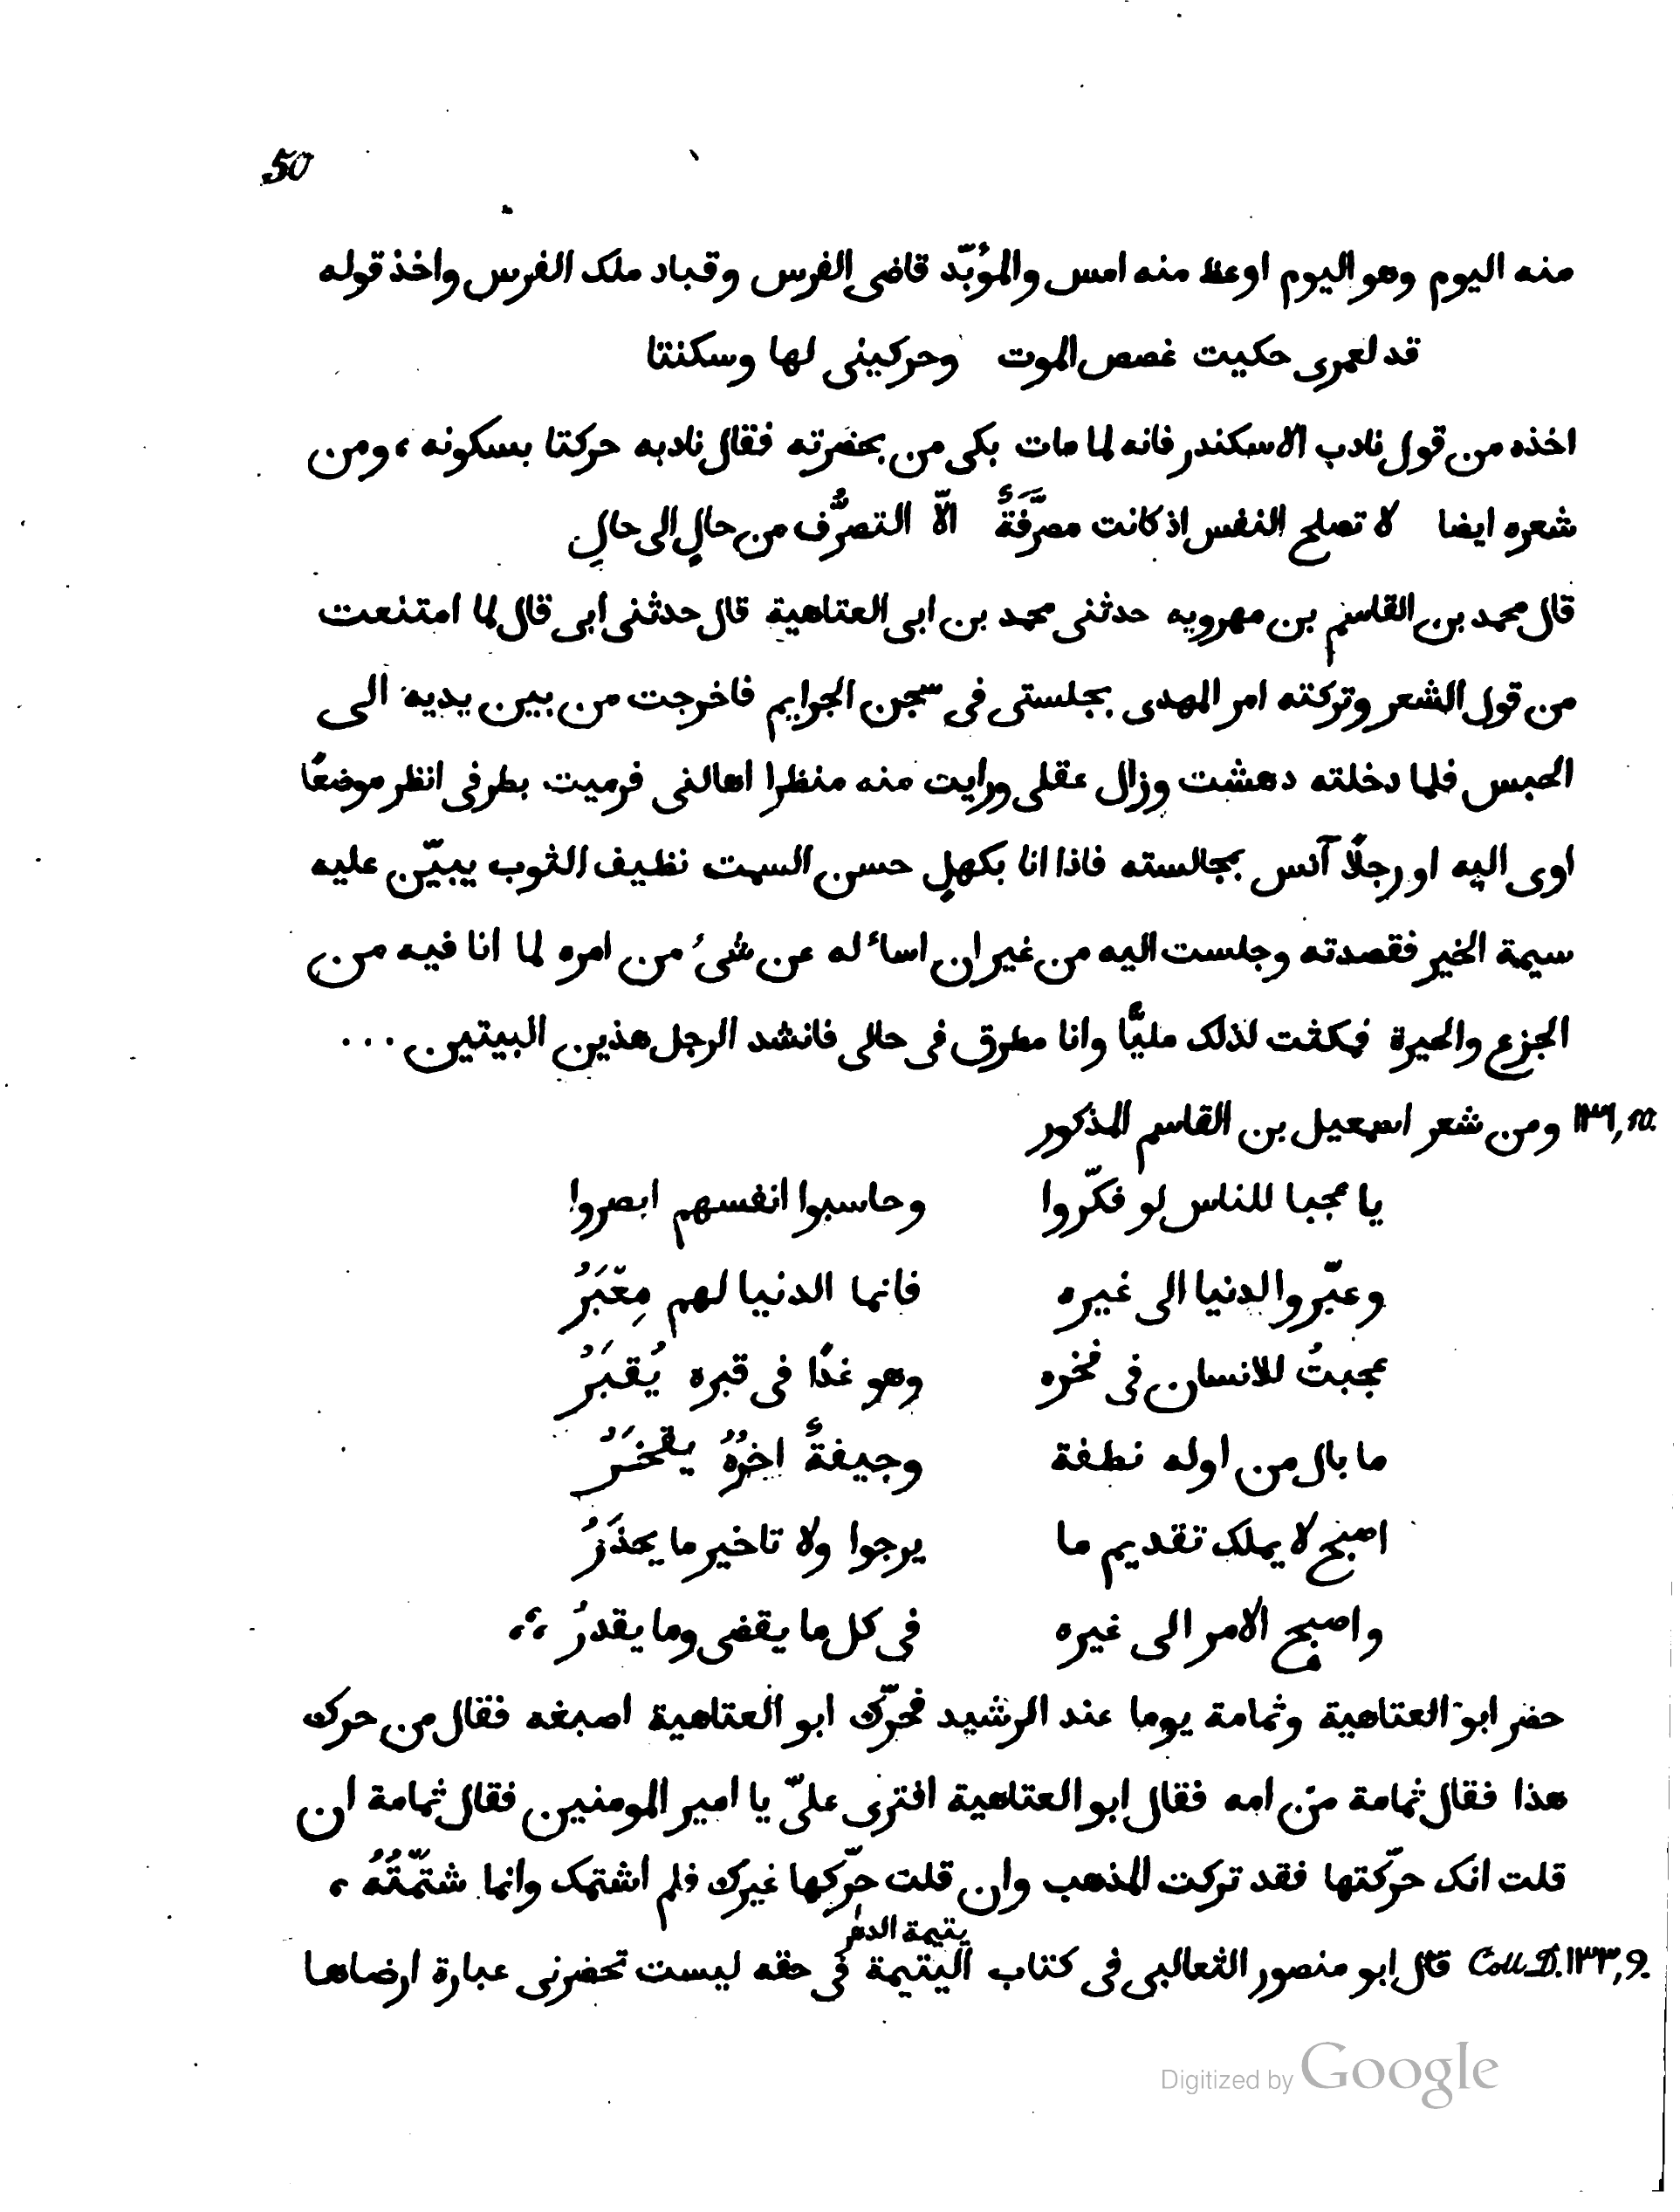 50
منه اليوم وهو اليوم اوعظ منه امس والمؤبّد قاضى الفرس وقباد ملك الفرس واخذ قوله
قد لعمرى حكيت غصص الموت وحركينى لها وسكنتا
اخذه من قول نادب الاسكندر فانه لما مات بكى من بحضرته فقال نادبه حركتا بسكونه ، ومن
شعره ايضا لا تصلح النفس اذ كانت مصرَّفَةً الّا التصرُّف من حالٍ الى حالِ
قال محمد بن القاسم بن مهرويه حدثنى محمد بن ابى العتاهية قال حدثنى ابى قال لما امتنعت
من قول الشعر وتركته امر المهدى بجلستى فى سجن الجرايم فاخرجت من بين يديه الى
الحبس فلما دخلته دهشت وزال عقلى ورايت منه منظرا اهالنى فرميت بطرفى انظر موضعًا
اوى اليه او رجلًا آنس بمجالسته فاذا انا بكهلٍ حسن السمت نظيف الثوب يبيّن عليه
سيمة الخير فقصدته وجلست اليه من غير ان اساٴله عن شئ من امره لما انا فيه من
الجزع والحيرة فمكثت لذلك مليًّا وانا مطرق فى حالى فانشد الرجل هذين البيتين ...
١٣٦, 10. ومن شعر اسمعيل بن القاسم المذكور
يا عجبا للناس لو فكّروا وحاسبوا انفسهم ابصروا
وعبّروا الدنيا الى غيره فانما الدنيا لهم مِعْبَرُ
عجبتُ للانسان فى فخره وهو غدًا فى قبره يُقبَرُ
ما بال من اوله نطفة وجيفةً اخرُهُ يفخَرُ
اصبح لا يملك تقديم ما يرجوا ولا تاخير ما يحذَرُ
واصبح الامر الى غيره فى كل ما يقضى وما يقدرُ ،،
حضر ابو العتاهية وثمامة يوما عند الرشيد فحرّك ابو العتاهية اصبغه فقال من حرك
هذا فقال ثمامة من امه فقال ابو العتاهية افترى علىّ يا امير المومنين فقال ثمامة ان
قلت انك حرّكتها فقد تركت المذهب وان قلت حرّكها غيرك فلم اشتمك وانما شتمّتُهُ ،
يتيمة الدهر
Coll. D. ١٣٣, 9. قال ابو منصور الثعالبى فى كتاب اليتيمة فى حقه ليست تحضرنى عبارة ارضاها
Digitized by Google